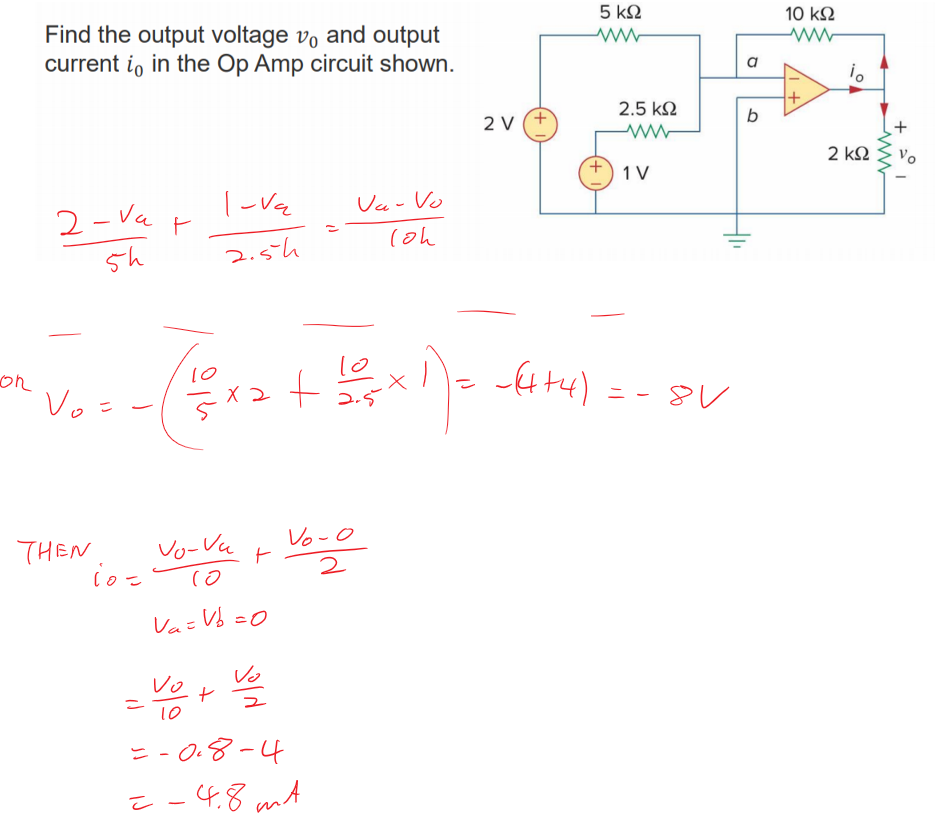 Find the output voltage v₀ and output
current i₀ in the Op Amp circuit shown.
5 kΩ
10 kΩ
a
i₀
2.5 kΩ
b
2 V
+
−
+
−
1 V
−
+
2 kΩ
+
v₀
−
(2 - Va)/5k + (1 - Va)/2.5k = (Va - Vo)/10k
or Vo = -(10/5 × 2 + 10/2.5 × 1) = -(4+4) = -8V
THEN io = (Vo - Va)/10 + (Vo - 0)/2
Va = Vb = 0
= Vo/10 + Vo/2
= -0.8 - 4
= -4.8 mA